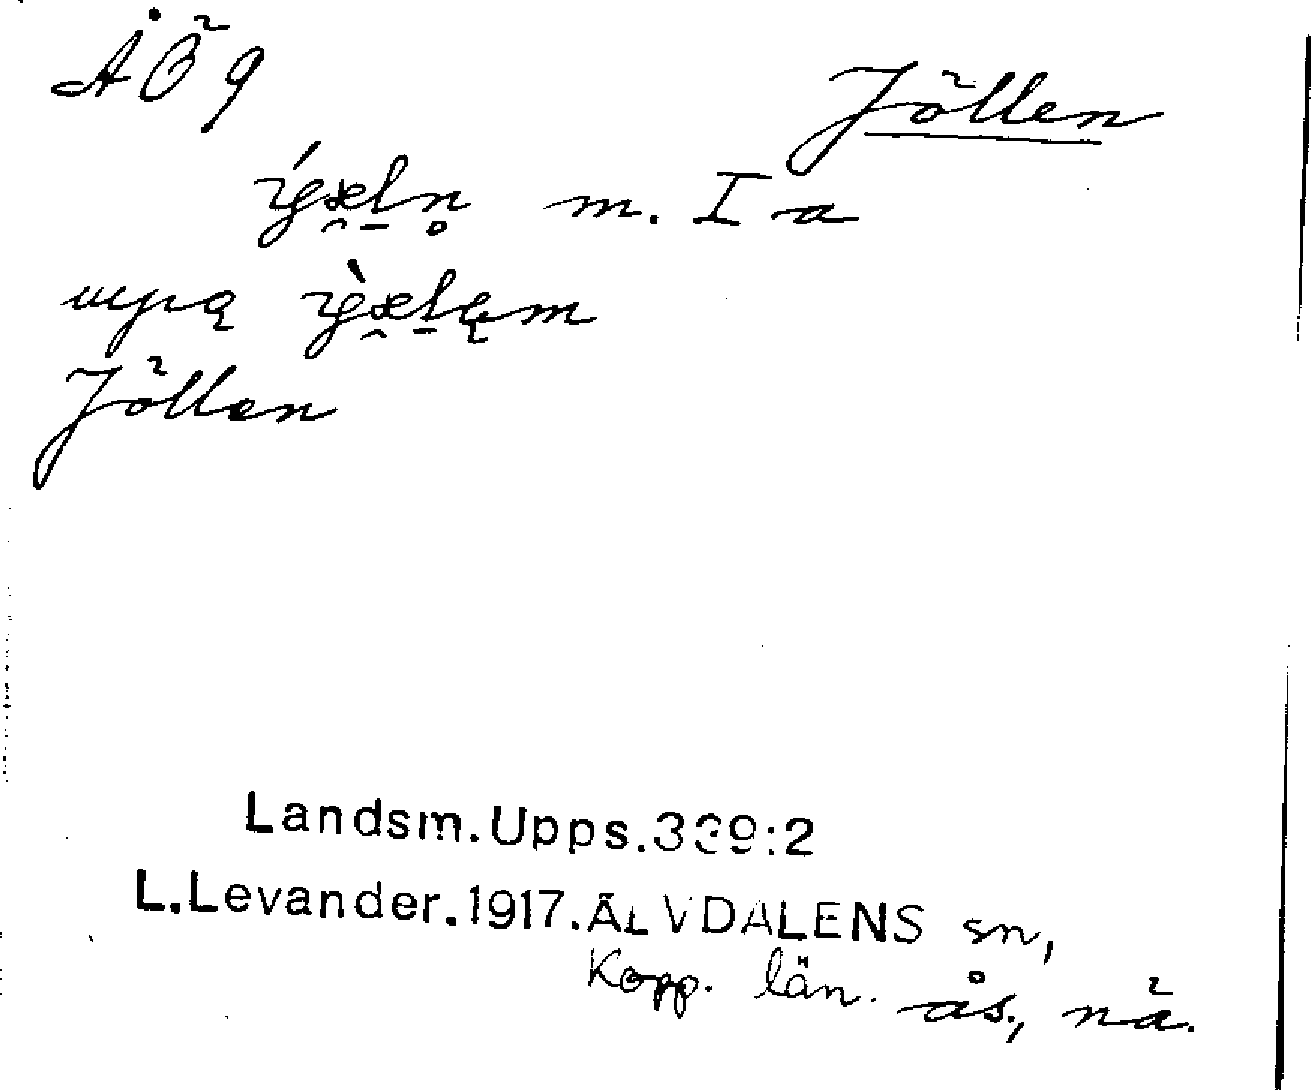 ÅÖ 9
Jöllen
m. I a
Jöllen
Landsm.Upps.339:2
L.Levander.1917.ÄLVDALENS sn,
Kopp. län. ås., nä.